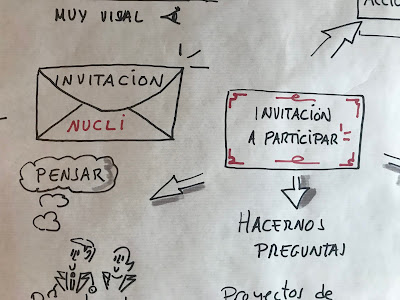 MUY VISAL
INVITACION
NUCLI
INVITACIÓN
A PARTICIPAR
PENSAR
HACERNOS
PREGUNTAS
Proyectos de